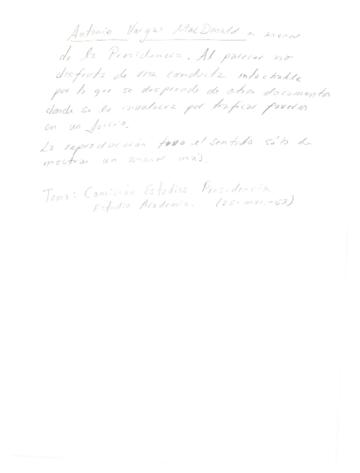 Antonio Vargas MacDonald a asesor
de la Presidencia. Al parecer no
disfruta de una conducta intachable
por lo que se desprende de otros documentos
donde se lo involucra por traficar
en un juicio.
La reproducción tuvo el sentido sólo de
mostrar un asesor más.
Tomo: Comisión Estudios Presidencia
Estudio Academia.